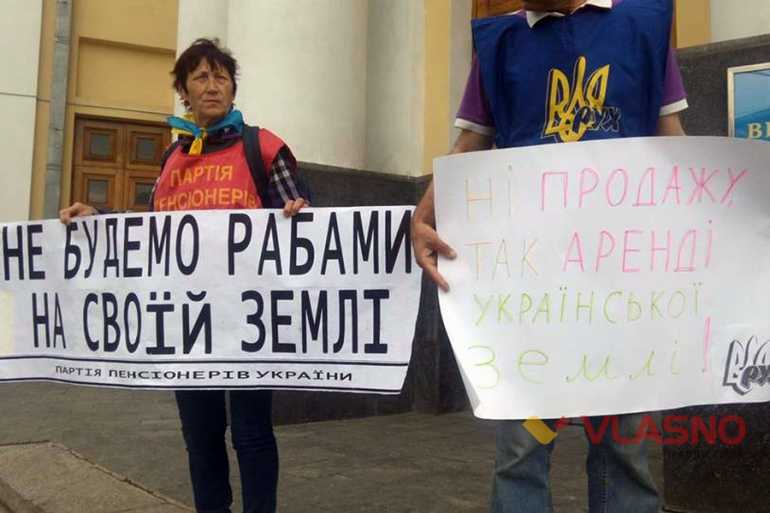 ПАРТІЯ
ПЕНСІОНЕРІВ
НЕ БУДЕМО РАБАМИ
НА СВОЇЙ ЗЕМЛІ
ПАРТІЯ ПЕНСІОНЕРІВ УКРАЇНИ
РУХ
НІ ПРОДАЖУ,
ТАК АРЕНДІ
УКРАЇНСЬКОЇ
ЗЕМЛІ!
РУХ
VLASNO